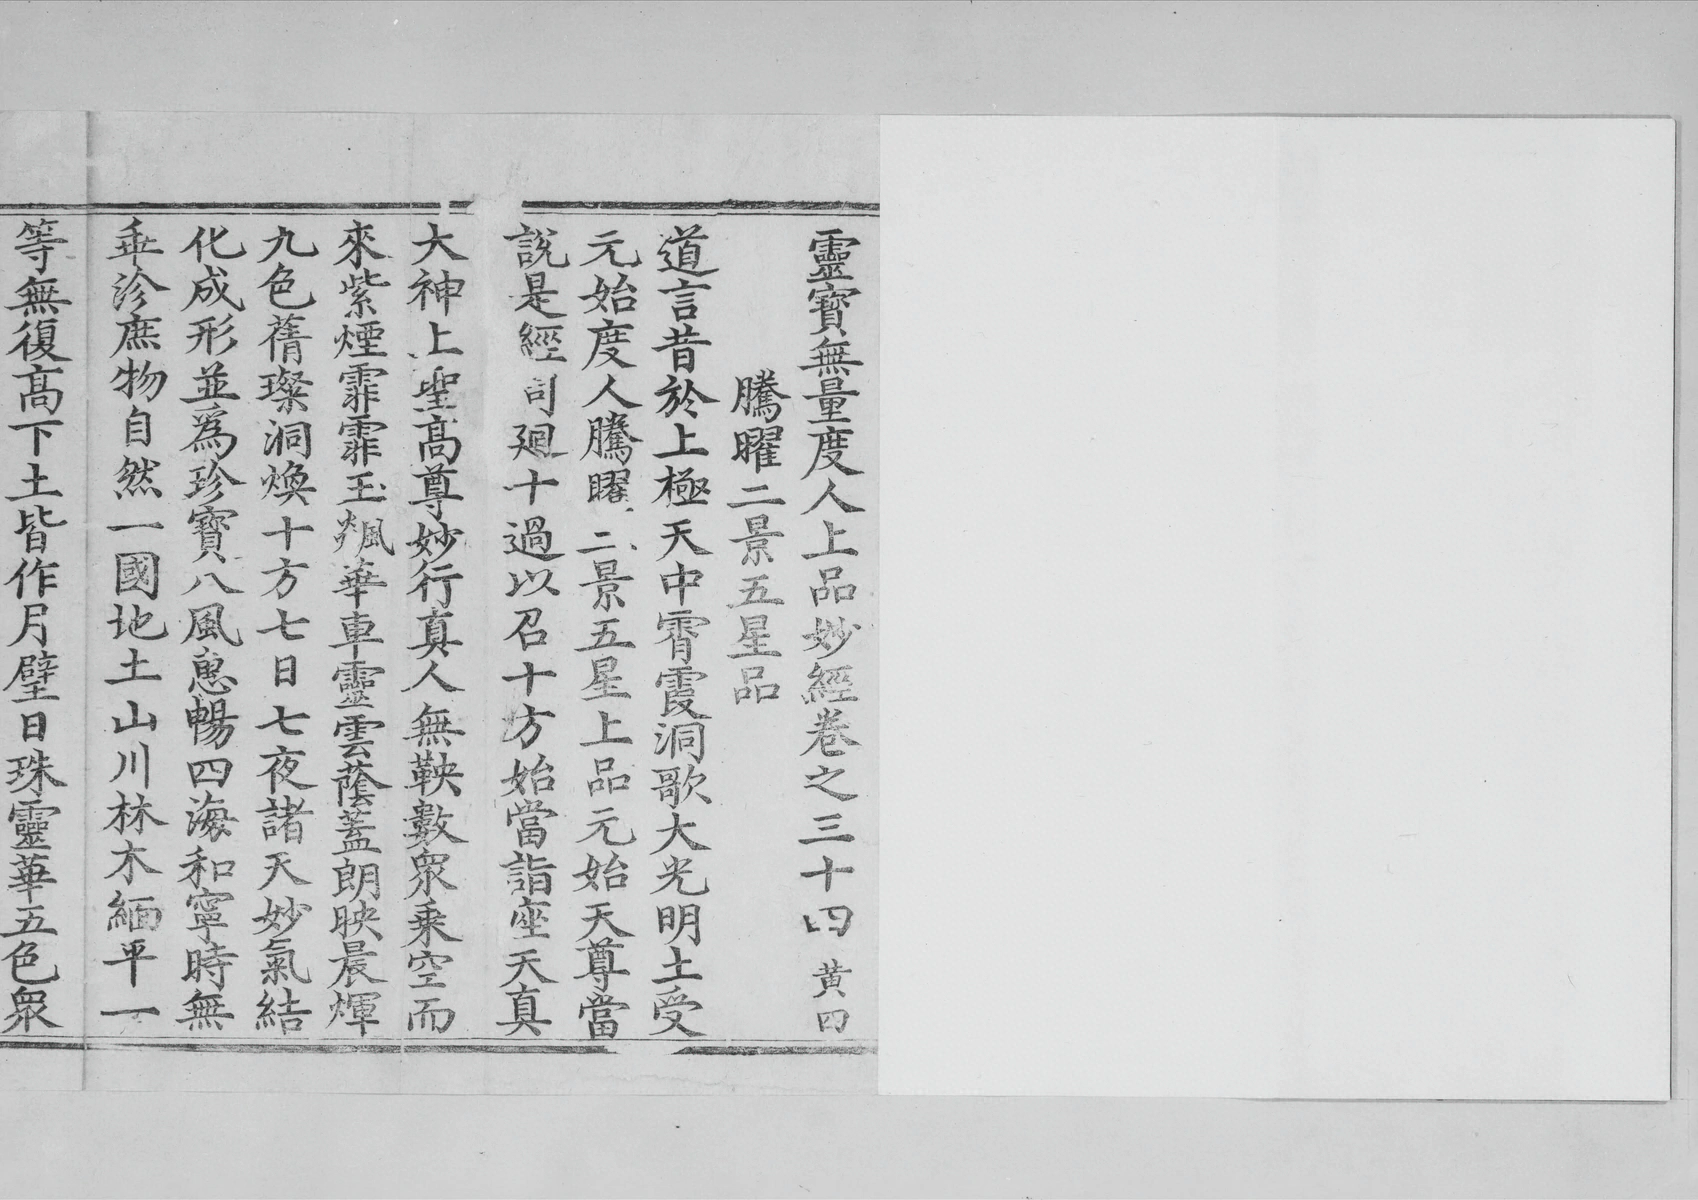 靈寶無量度人上品妙經卷之三十四 黃四
騰曜二景五星品
道言昔於上極天中霄霞洞歌大光明土受
元始度人騰曜二景五星上品元始天尊當
說是經司廻十過以召十方始當詣座天真
大神上聖高尊妙行真人無鞅數衆乘空而
來紫煙霏霏玉飈華車靈雲蔭蓋朗映晨煇
九色蒨璨洞煥十方七日七夜諸天妙氣結
化成形並爲珍寶八風惠暢四海和寧時無
乖沴庶物自然一國地土山川林木緬平一
等無復高下土皆作月璧日珠靈華五色衆